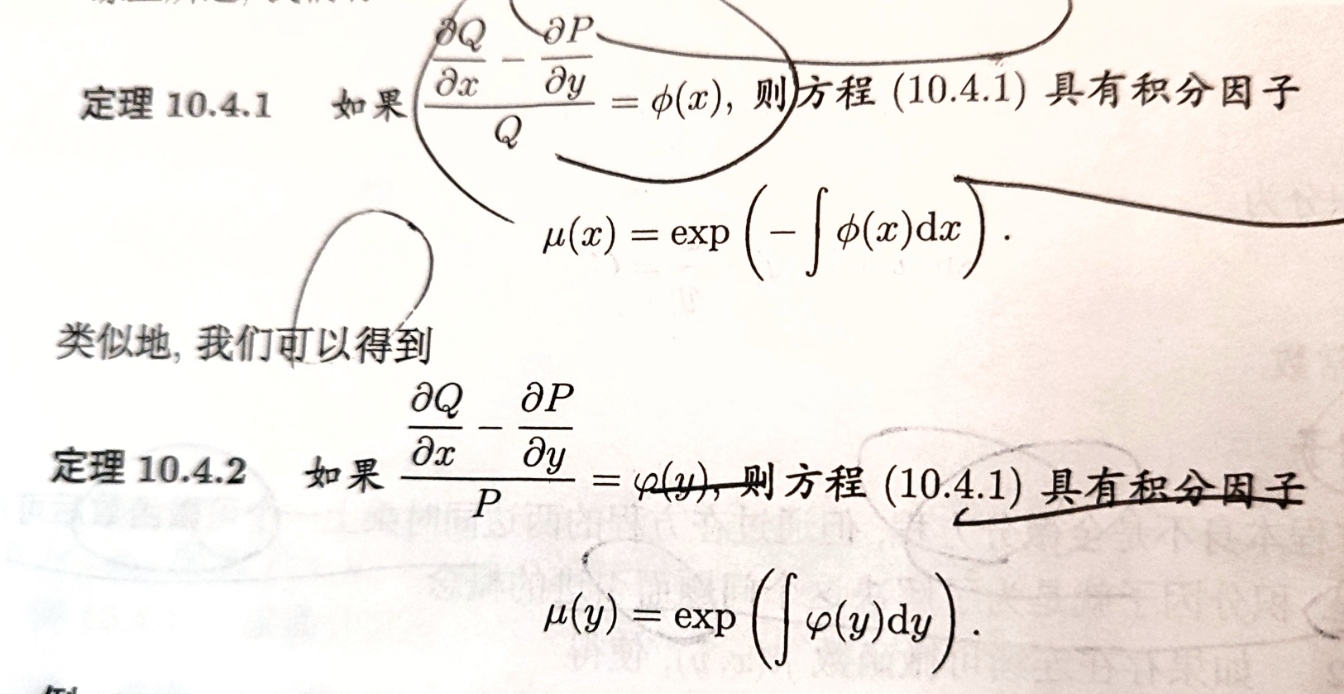 定理 10.4.1 如果 \frac{\frac{\partial Q}{\partial x} - \frac{\partial P}{\partial y}}{Q} = \phi(x), 则方程 (10.4.1) 具有积分因子
\mu(x) = \exp\left(-\int \phi(x)\mathrm{d}x\right).
类似地, 我们可以得到
定理 10.4.2 如果 \frac{\frac{\partial Q}{\partial x} - \frac{\partial P}{\partial y}}{P} = \varphi(y), 则方程 (10.4.1) 具有积分因子
\mu(y) = \exp\left(\int \varphi(y)\mathrm{d}y\right).